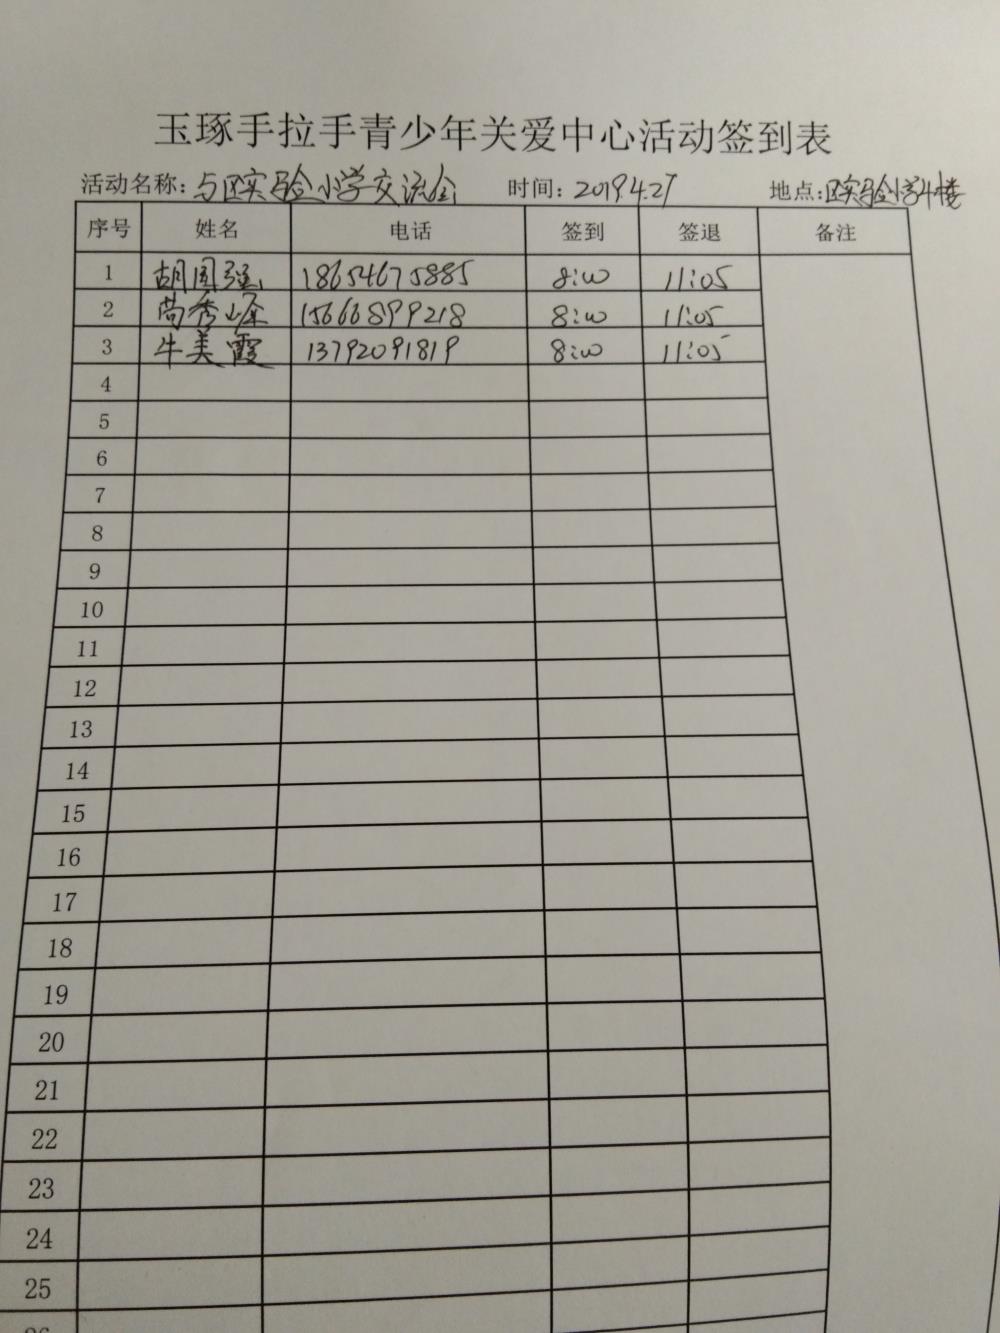 玉琢手拉手青少年关爱中心活动签到表
活动名称：与区实验小学交流会 时间：2019.4.27 地点：区实验小学4楼
序号 姓名 电话 签到 签退 备注
1 胡国强 18654675885 8:00 11:05
2 尚秀峰 15666899218 8:00 11:05
3 牛美霞 13792091819 8:00 11:05
4
5
6
7
8
9
10
11
12
13
14
15
16
17
18
19
20
21
22
23
24
25
26